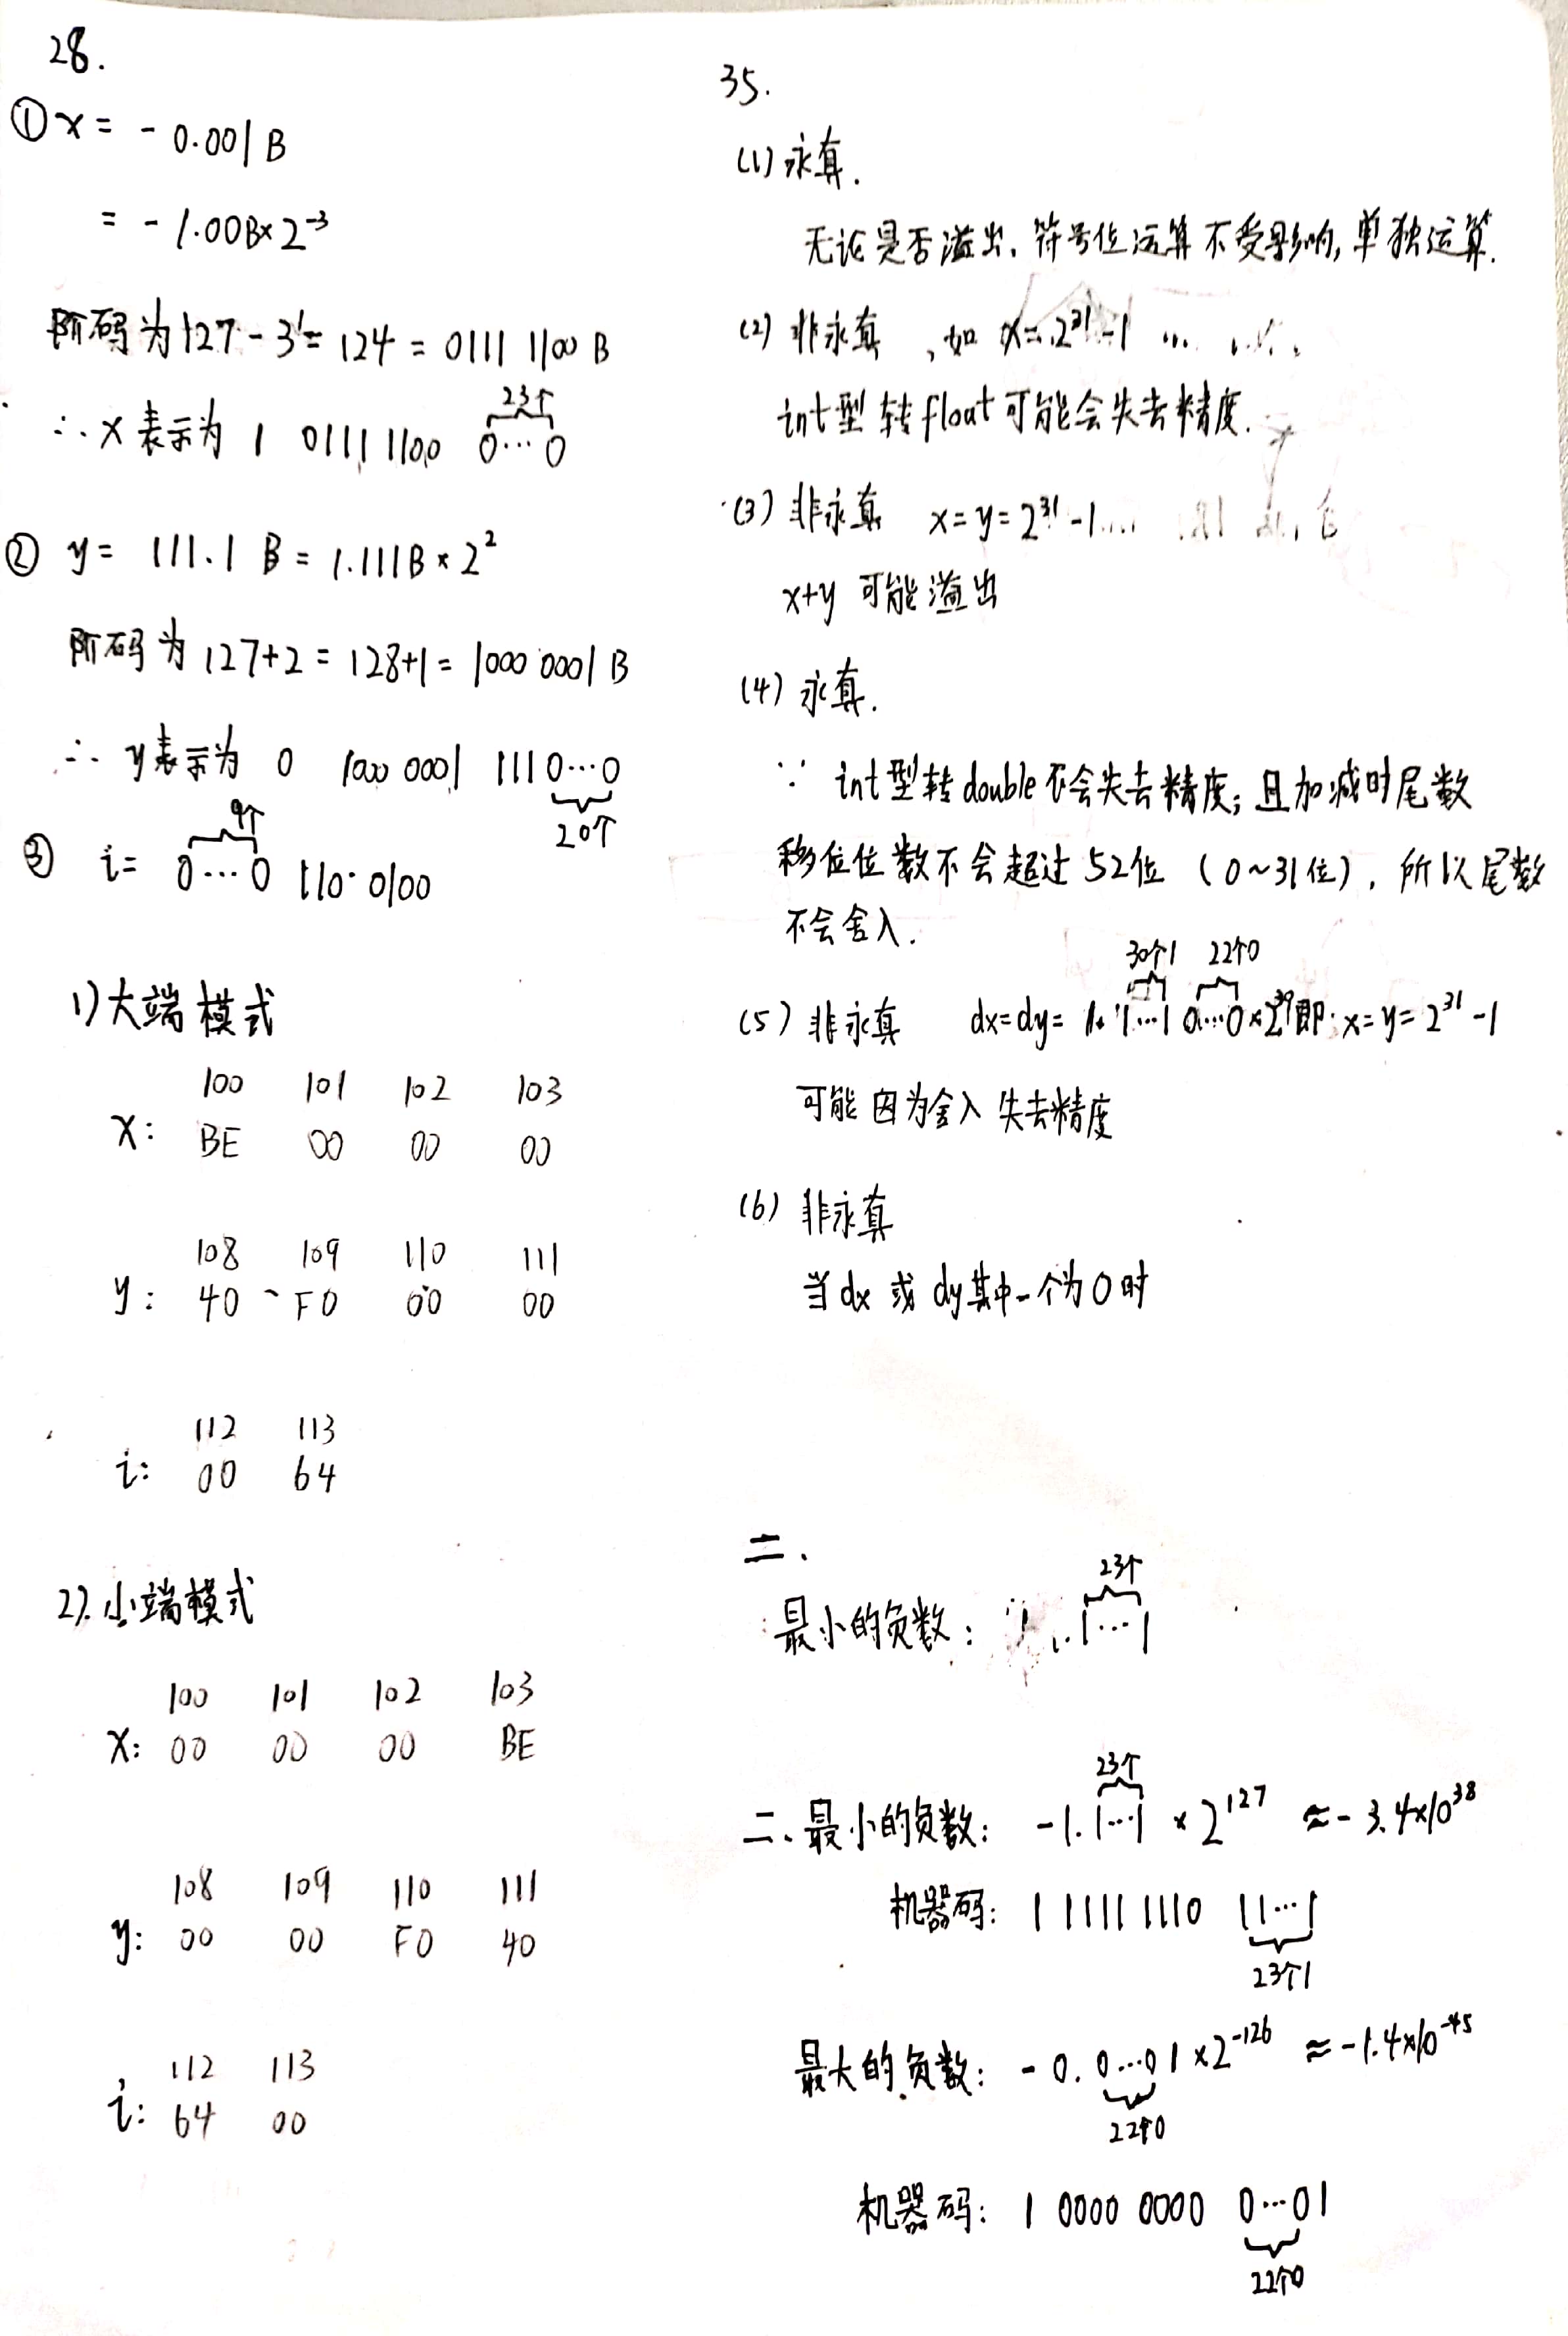 28.
① x = - 0.001 B
= - 1.00B×2⁻³
阶码为127-3=124=0111 1100 B
23个
∴ x 表示为 1 0111 1100 0…0
② y = 111.1 B = 1.111B × 2²
阶码为 127+2 = 128+1 = 1000 0001 B
∴ y表示为 0 1000 0001 1110…0
20个
9个
③ i = 0…0 110 0100
1) 大端模式
100 101 102 103
x: BE 00 00 00
108 109 110 111
y: 40 F0 00 00
112 113
i: 00 64
2). 小端模式
100 101 102 103
x: 00 00 00 BE
108 109 110 111
y: 00 00 F0 40
112 113
i: 64 00
35.
(1) 永真.
无论是否溢出, 符号位运算不受影响, 单独运算.
(2) 非永真, 如 x=2³¹-1
int型转float可能会失去精度.
(3) 非永真 x=y=2³¹-1
x+y 可能溢出
(4) 永真.
∵ int型转double不会失去精度; 且加减时尾数
移位位数不会超过52位 (0~31位), 所以尾数
不会舍入.
30个1 22个0
(5) 非永真 dx=dy= 1. 1…1 0…0 × 即 x=y=2³¹-1
可能因为舍入失去精度
(6) 非永真
当 dx 或 dy其中一个为0时
二.
23个
最小的负数: 1…1
23个
二、最小的负数: -1.1…1 × 2¹²⁷ ≈ - 3.4×10³⁸
机器码: 1 1111 1110 11…1
23个1
最大的负数: - 0.0…01 ×2⁻¹²⁶ ≈ -1.4×10⁻⁴⁵
22个0
机器码: 1 0000 0000 0…01
22个0